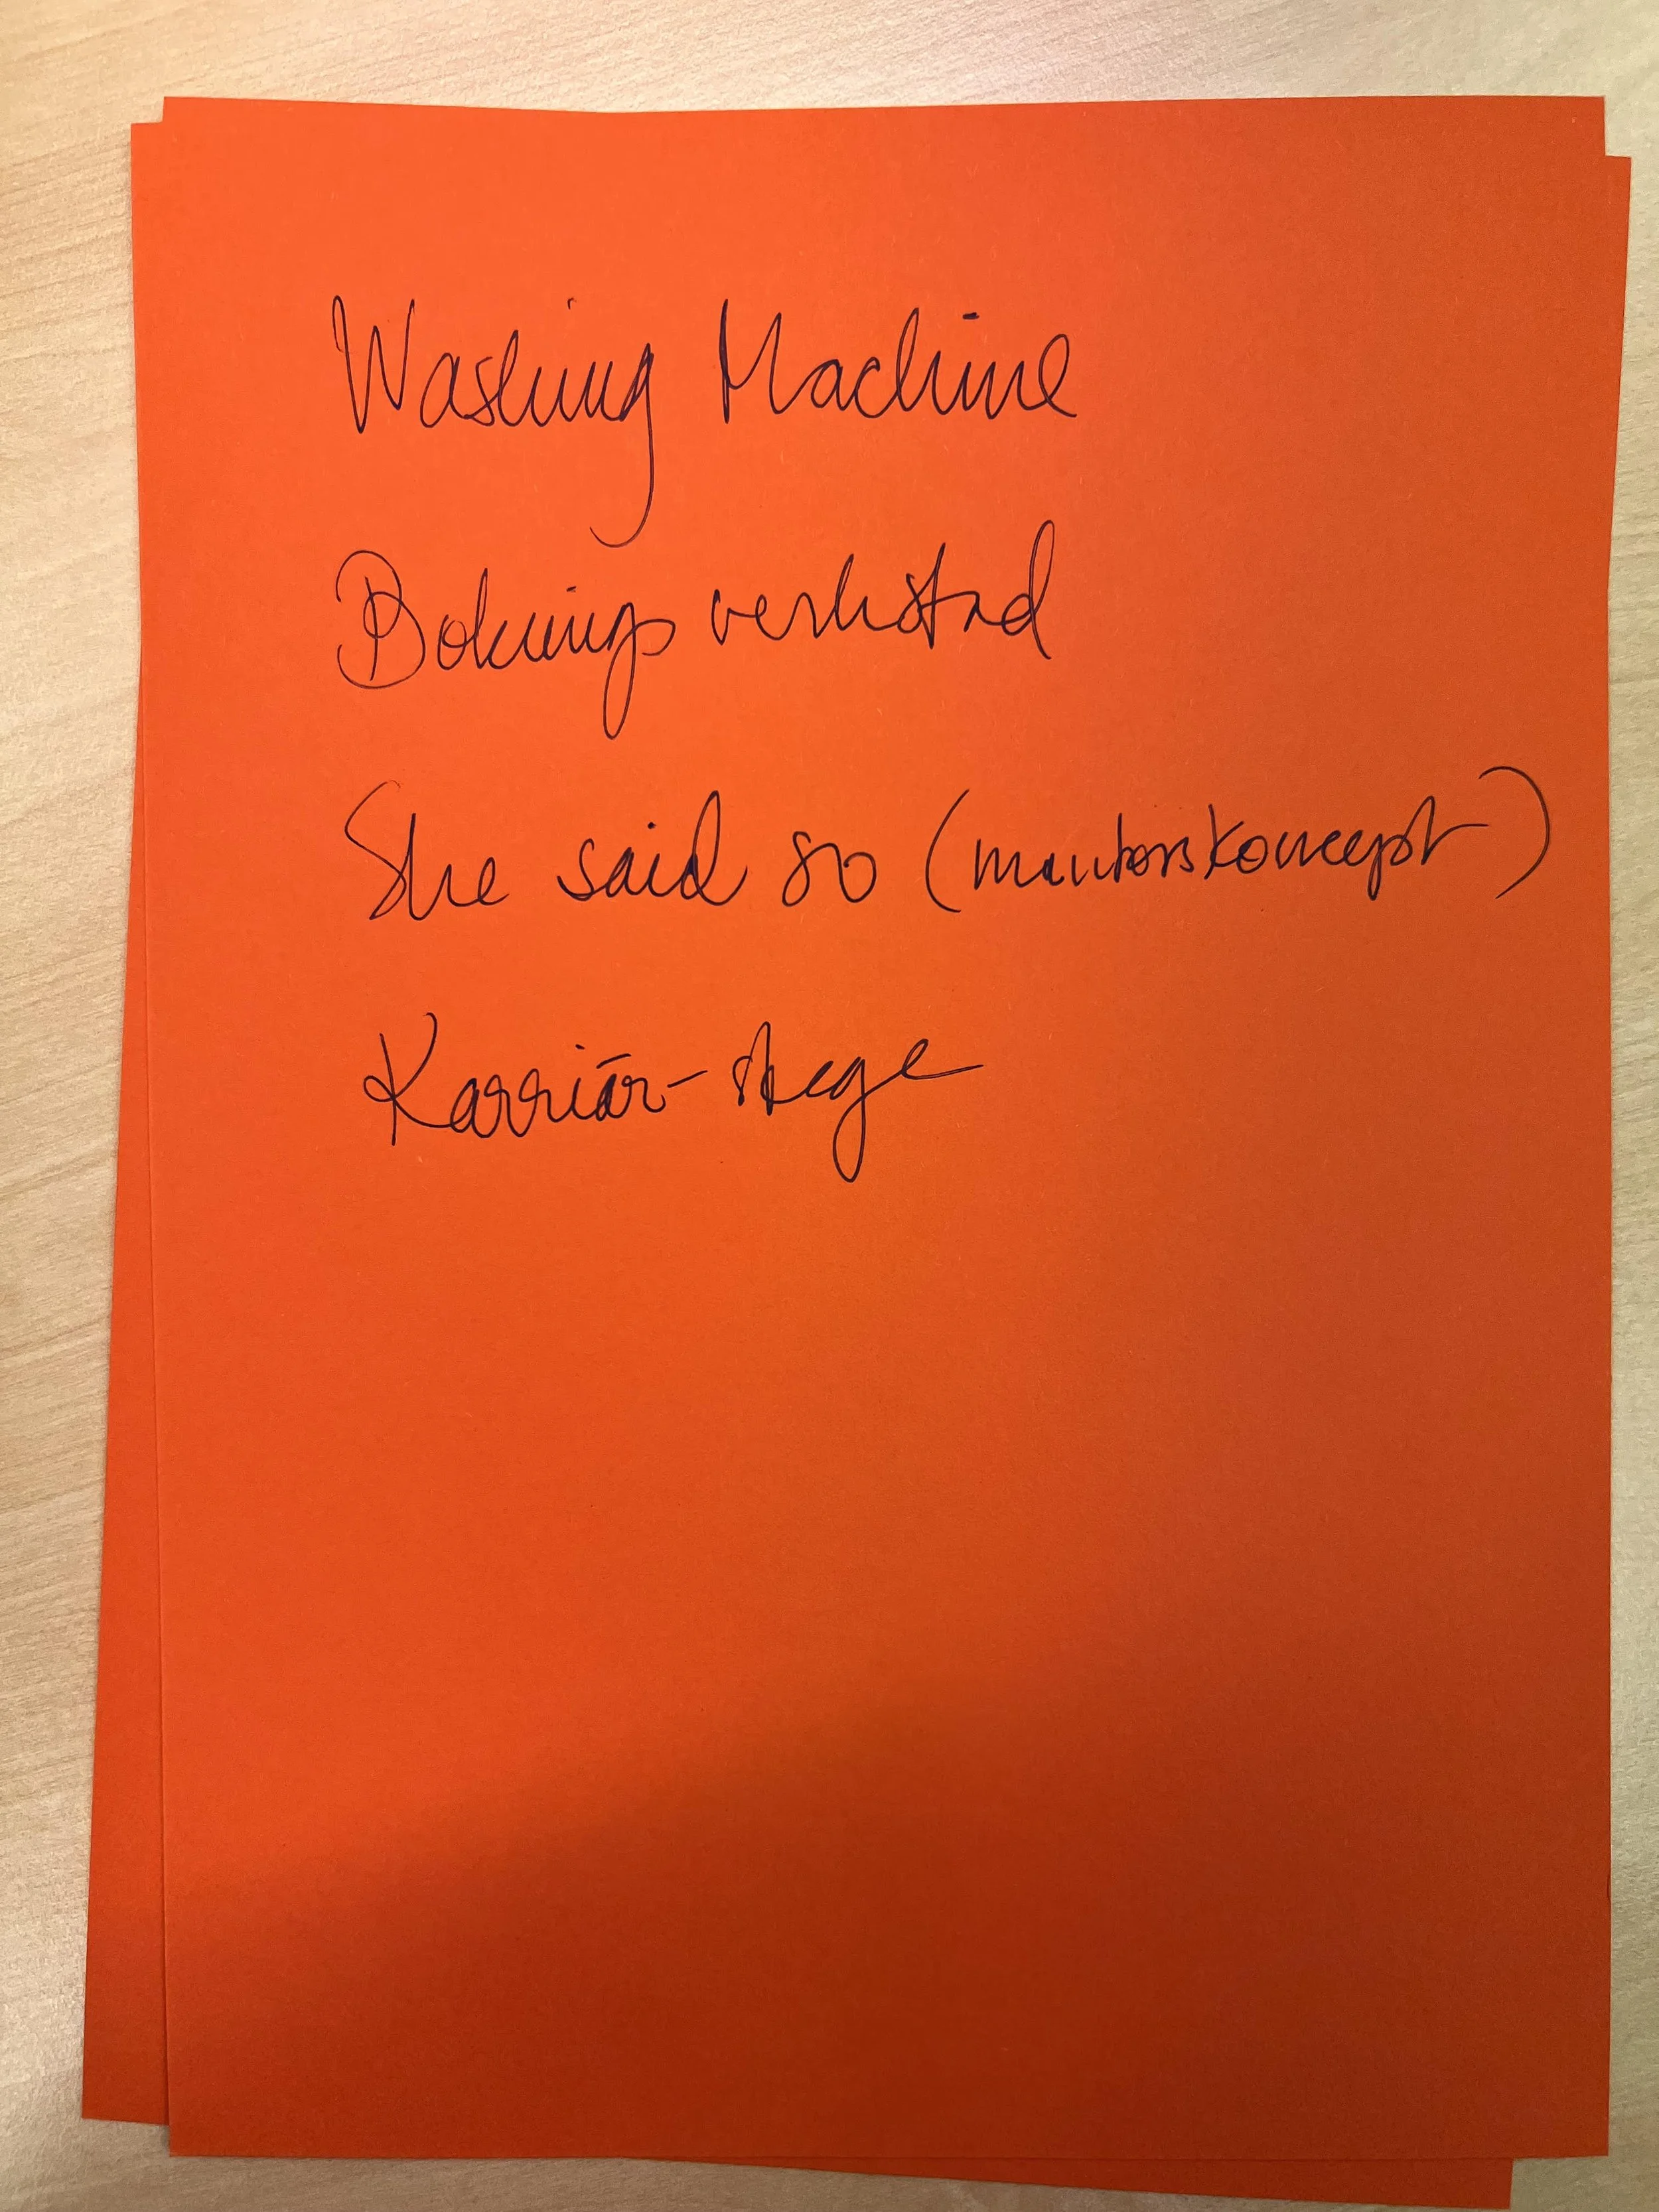 Washing Machine
Boknings verkstad
She said so (mentorskoncept)
Karriär-stege